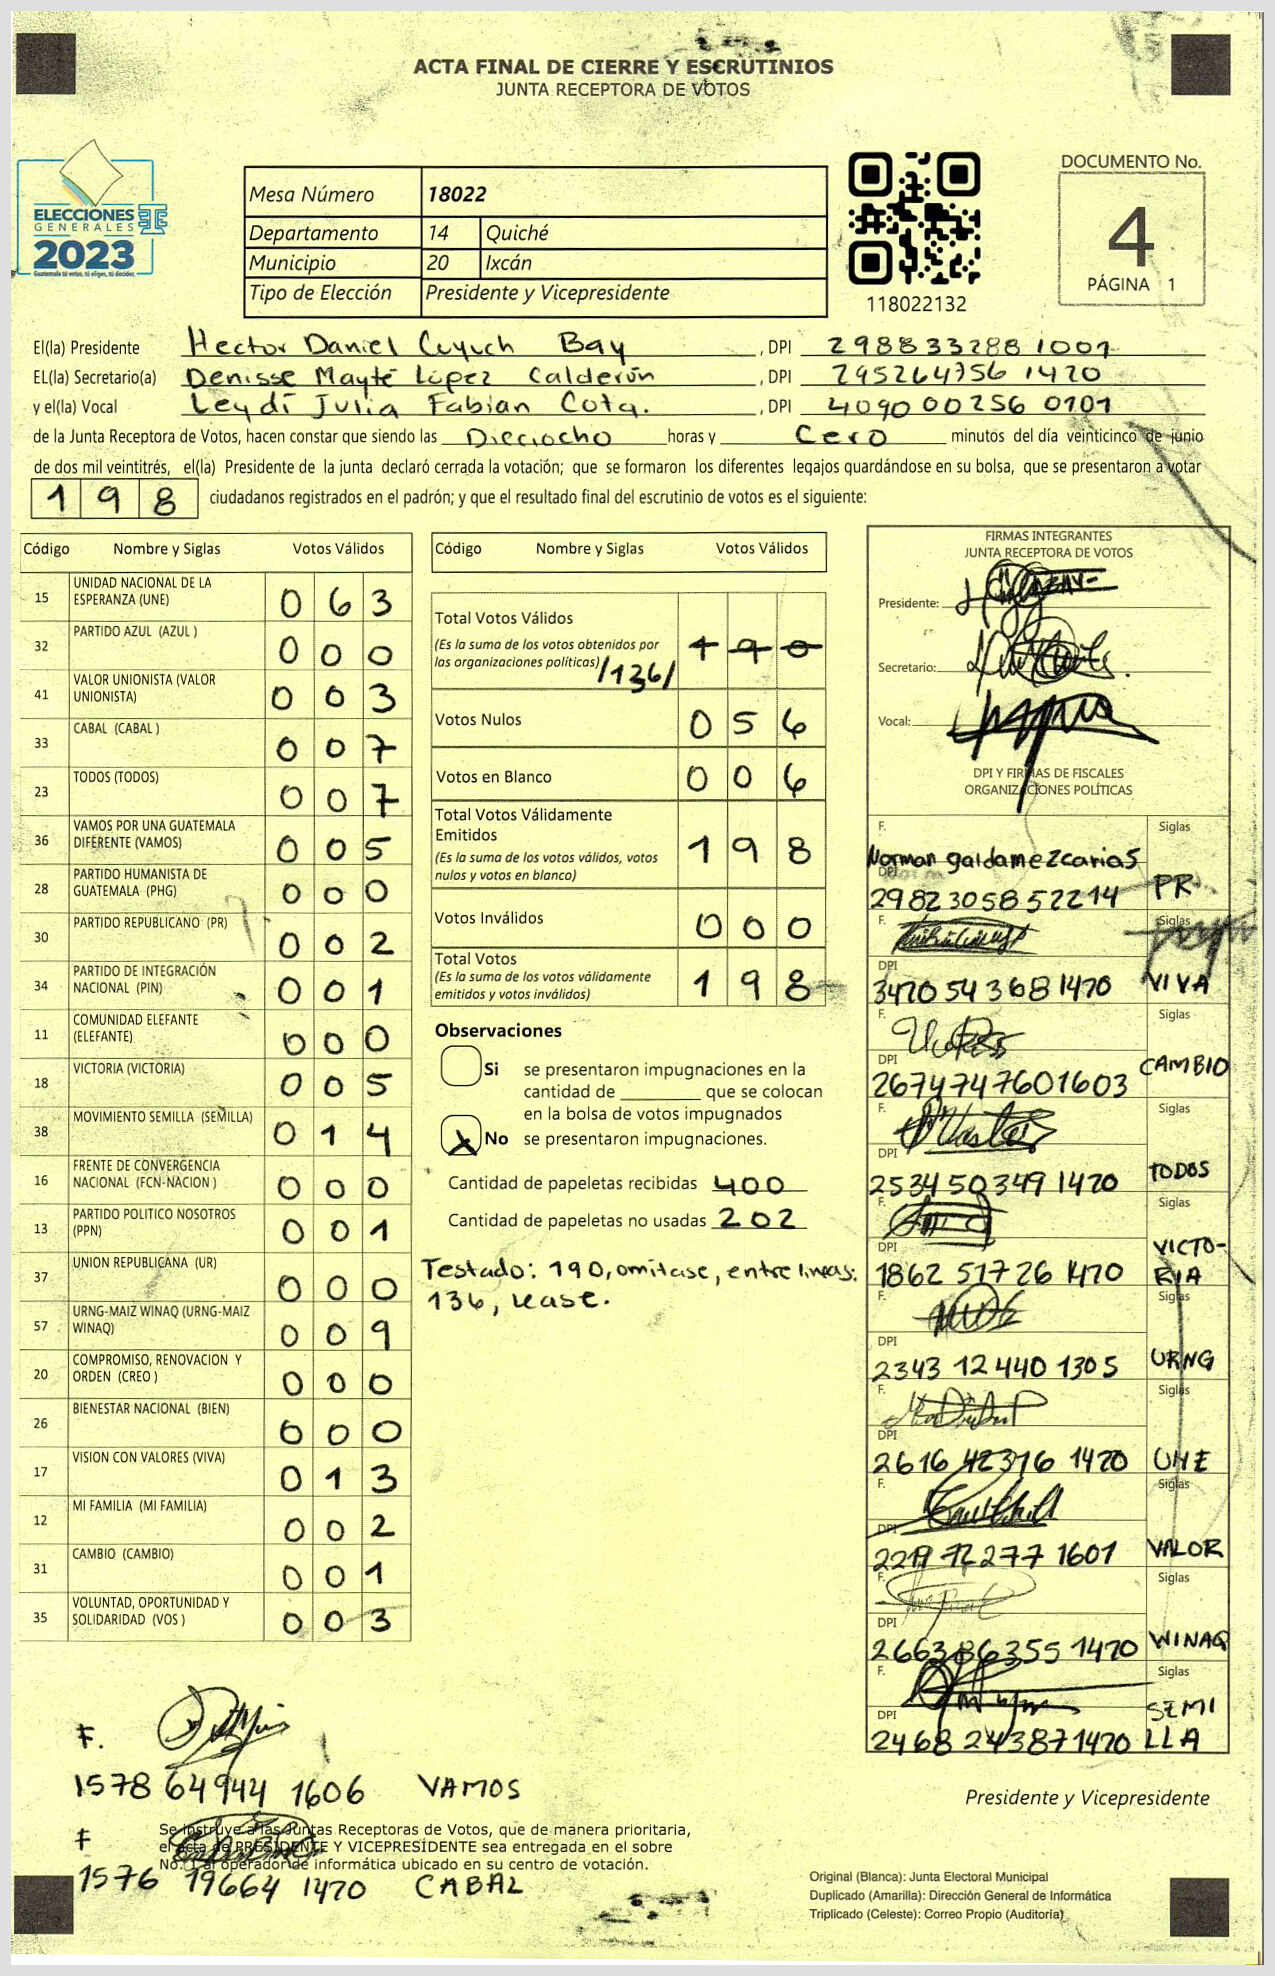 ACTA FINAL DE CIERRE Y ESCRUTINIOS
JUNTA RECEPTORA DE VOTOS
ELECCIONES
GENERALES
2023
Guatemala: tú votas, tú eliges, tú decides
Mesa Número 18022
Departamento 14 Quiché
Municipio 20 Ixcán
Tipo de Elección Presidente y Vicepresidente
118022132
DOCUMENTO No.
4
PÁGINA 1
El(la) Presidente Hector Daniel Cuyuch Bay, DPI 298833288 1001
EL(la) Secretario(a) Denisse Mayté López Calderón, DPI 295264756 1420
y el(la) Vocal Leydi Julia Fabian Cota., DPI 409000256 0101
de la Junta Receptora de Votos, hacen constar que siendo las Dieciocho horas y Cero minutos del día veinticinco de junio
de dos mil veintitrés, el(la) Presidente de la junta declaró cerrada la votación; que se formaron los diferentes legajos guardándose en su bolsa, que se presentaron a votar
198 ciudadanos registrados en el padrón; y que el resultado final del escrutinio de votos es el siguiente:
Código Nombre y Siglas Votos Válidos
15 UNIDAD NACIONAL DE LA ESPERANZA (UNE) 063
32 PARTIDO AZUL (AZUL ) 000
41 VALOR UNIONISTA (VALOR UNIONISTA) 003
33 CABAL (CABAL ) 007
23 TODOS (TODOS) 007
36 VAMOS POR UNA GUATEMALA DIFERENTE (VAMOS) 005
28 PARTIDO HUMANISTA DE GUATEMALA (PHG) 000
30 PARTIDO REPUBLICANO (PR) 002
34 PARTIDO DE INTEGRACIÓN NACIONAL (PIN) 001
11 COMUNIDAD ELEFANTE (ELEFANTE) 000
18 VICTORIA (VICTORIA) 005
38 MOVIMIENTO SEMILLA (SEMILLA) 014
16 FRENTE DE CONVERGENCIA NACIONAL (FCN-NACION ) 000
13 PARTIDO POLITICO NOSOTROS (PPN) 001
37 UNION REPUBLICANA (UR) 000
57 URNG-MAIZ WINAQ (URNG-MAIZ WINAQ) 009
20 COMPROMISO, RENOVACION Y ORDEN (CREO ) 000
26 BIENESTAR NACIONAL (BIEN) 000
17 VISION CON VALORES (VIVA) 013
12 MI FAMILIA (MI FAMILIA) 002
31 CAMBIO (CAMBIO) 001
35 VOLUNTAD, OPORTUNIDAD Y SOLIDARIDAD (VOS ) 003
Código Nombre y Siglas Votos Válidos
Total Votos Válidos 190
(Es la suma de los votos obtenidos por
las organizaciones políticas) /136/
Votos Nulos 056
Votos en Blanco 006
Total Votos Válidamente
Emitidos 198
(Es la suma de los votos válidos, votos
nulos y votos en blanco)
Votos Inválidos 000
Total Votos 198
(Es la suma de los votos válidamente
emitidos y votos inválidos)
Observaciones
Si se presentaron impugnaciones en la
cantidad de ________ que se colocan
en la bolsa de votos impugnados
X No se presentaron impugnaciones.
Cantidad de papeletas recibidas 400
Cantidad de papeletas no usadas 202
Testado: 190, omitase, entre lineas:
136, lease.
FIRMAS INTEGRANTES
JUNTA RECEPTORA DE VOTOS
Presidente:
Secretario:
Vocal:
DPI Y FIRMAS DE FISCALES
ORGANIZACIONES POLÍTICAS
F. Siglas
Norman galdamez carias
DPI
2982305852214 PR
F. Siglas
DPI
3420 54368 1420 VIVA
F. Siglas
DPI
2674747601603 CAMBIO
F. Siglas
DPI
2534 50349 1420 TODOS
F. Siglas
DPI
1862 51726 1420 VICTO-
RIA
F. Siglas
DPI
2343 12440 1305 URNG
F. Siglas
DPI
2616 42376 1420 UNE
F. Siglas
DPI
2219 72277 1601 VALOR
F. Siglas
DPI
266386355 1420 WINAQ
F. Siglas
DPI
2468 24387 1420 SEMI
LLA
Presidente y Vicepresidente
F.
1578 64944 1606 VAMOS
Se instruye a las Juntas Receptoras de Votos, que de manera prioritaria,
el acta de PRESIDENTE Y VICEPRESIDENTE sea entregada en el sobre
No. 1 al operador de informática ubicado en su centro de votación.
F
1576 19664 1420 CABAL
Original (Blanca): Junta Electoral Municipal
Duplicado (Amarilla): Dirección General de Informática
Triplicado (Celeste): Correo Propio (Auditoría)